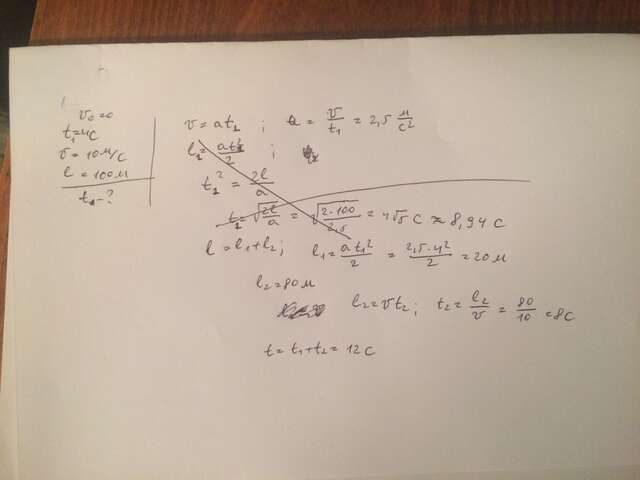 v₀=0
t₁=4с
v=10м/с
l=100м
t-?
v=at₁ ; a= v/t₁ = 2,5 м/с²
l₁= at₁²/2 ;
t₁² = 2l/a
t₁=√(2l/a) = √(2·100/2,5) = 4√5 с ≈ 8,94 с
l=l₁+l₂; l₁= at₁²/2 = 2,5·4²/2 =20м
l₂=80м
l₂=vt₂; t₂= l₂/v = 80/10 =8с
t=t₁+t₂=12с